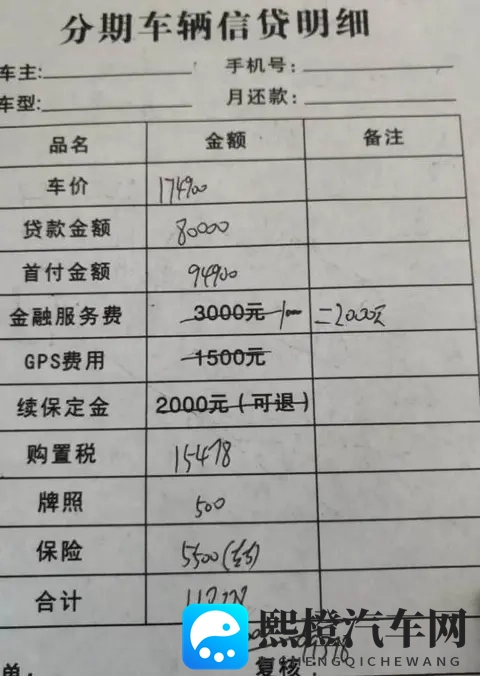 分期车辆信贷明细
车主: 手机号:
车型: 月还款:
品名 金额 备注
车价 174900
贷款金额 80000
首付金额 94900
金融服务费 3000元 =2000元
GPS费用 1500元
续保定金 2000元(可退)
购置税 15478
牌照 500
保险 5500
合计
单: 复核:
熙橙汽车网
HENGQICHEWANG